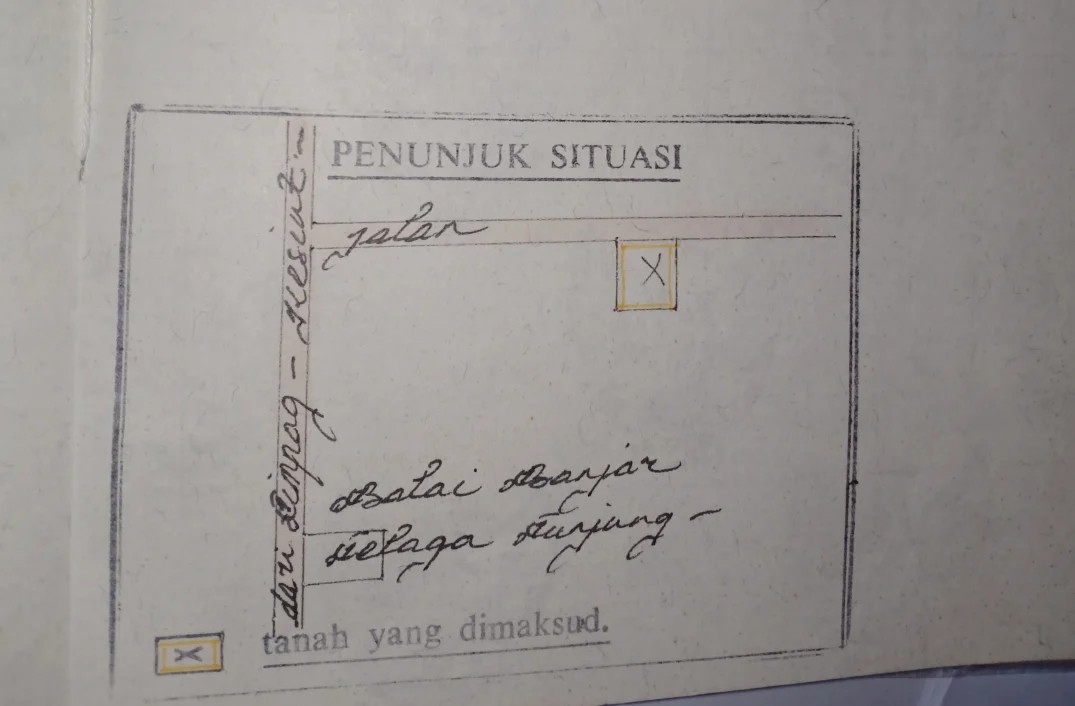 PENUNJUK SITUASI
jalan
X
dari Simpag -
Balai Banjar
Telaga Tunjung -
X tanah yang dimaksud.